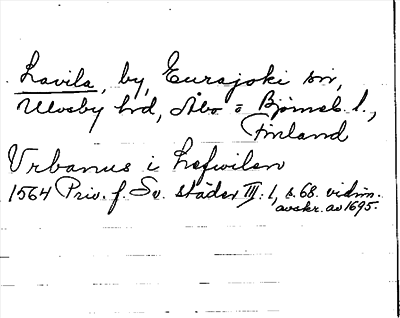 Lavila, by, Eurajoki sn,
Ulvsby hd, Åbo o Björneb. l.,
Finland
Urbanus i Lefwilan
1564 Priv. f. Sv. städer III:1, s. 68. vidim.
avskr. av 1695.